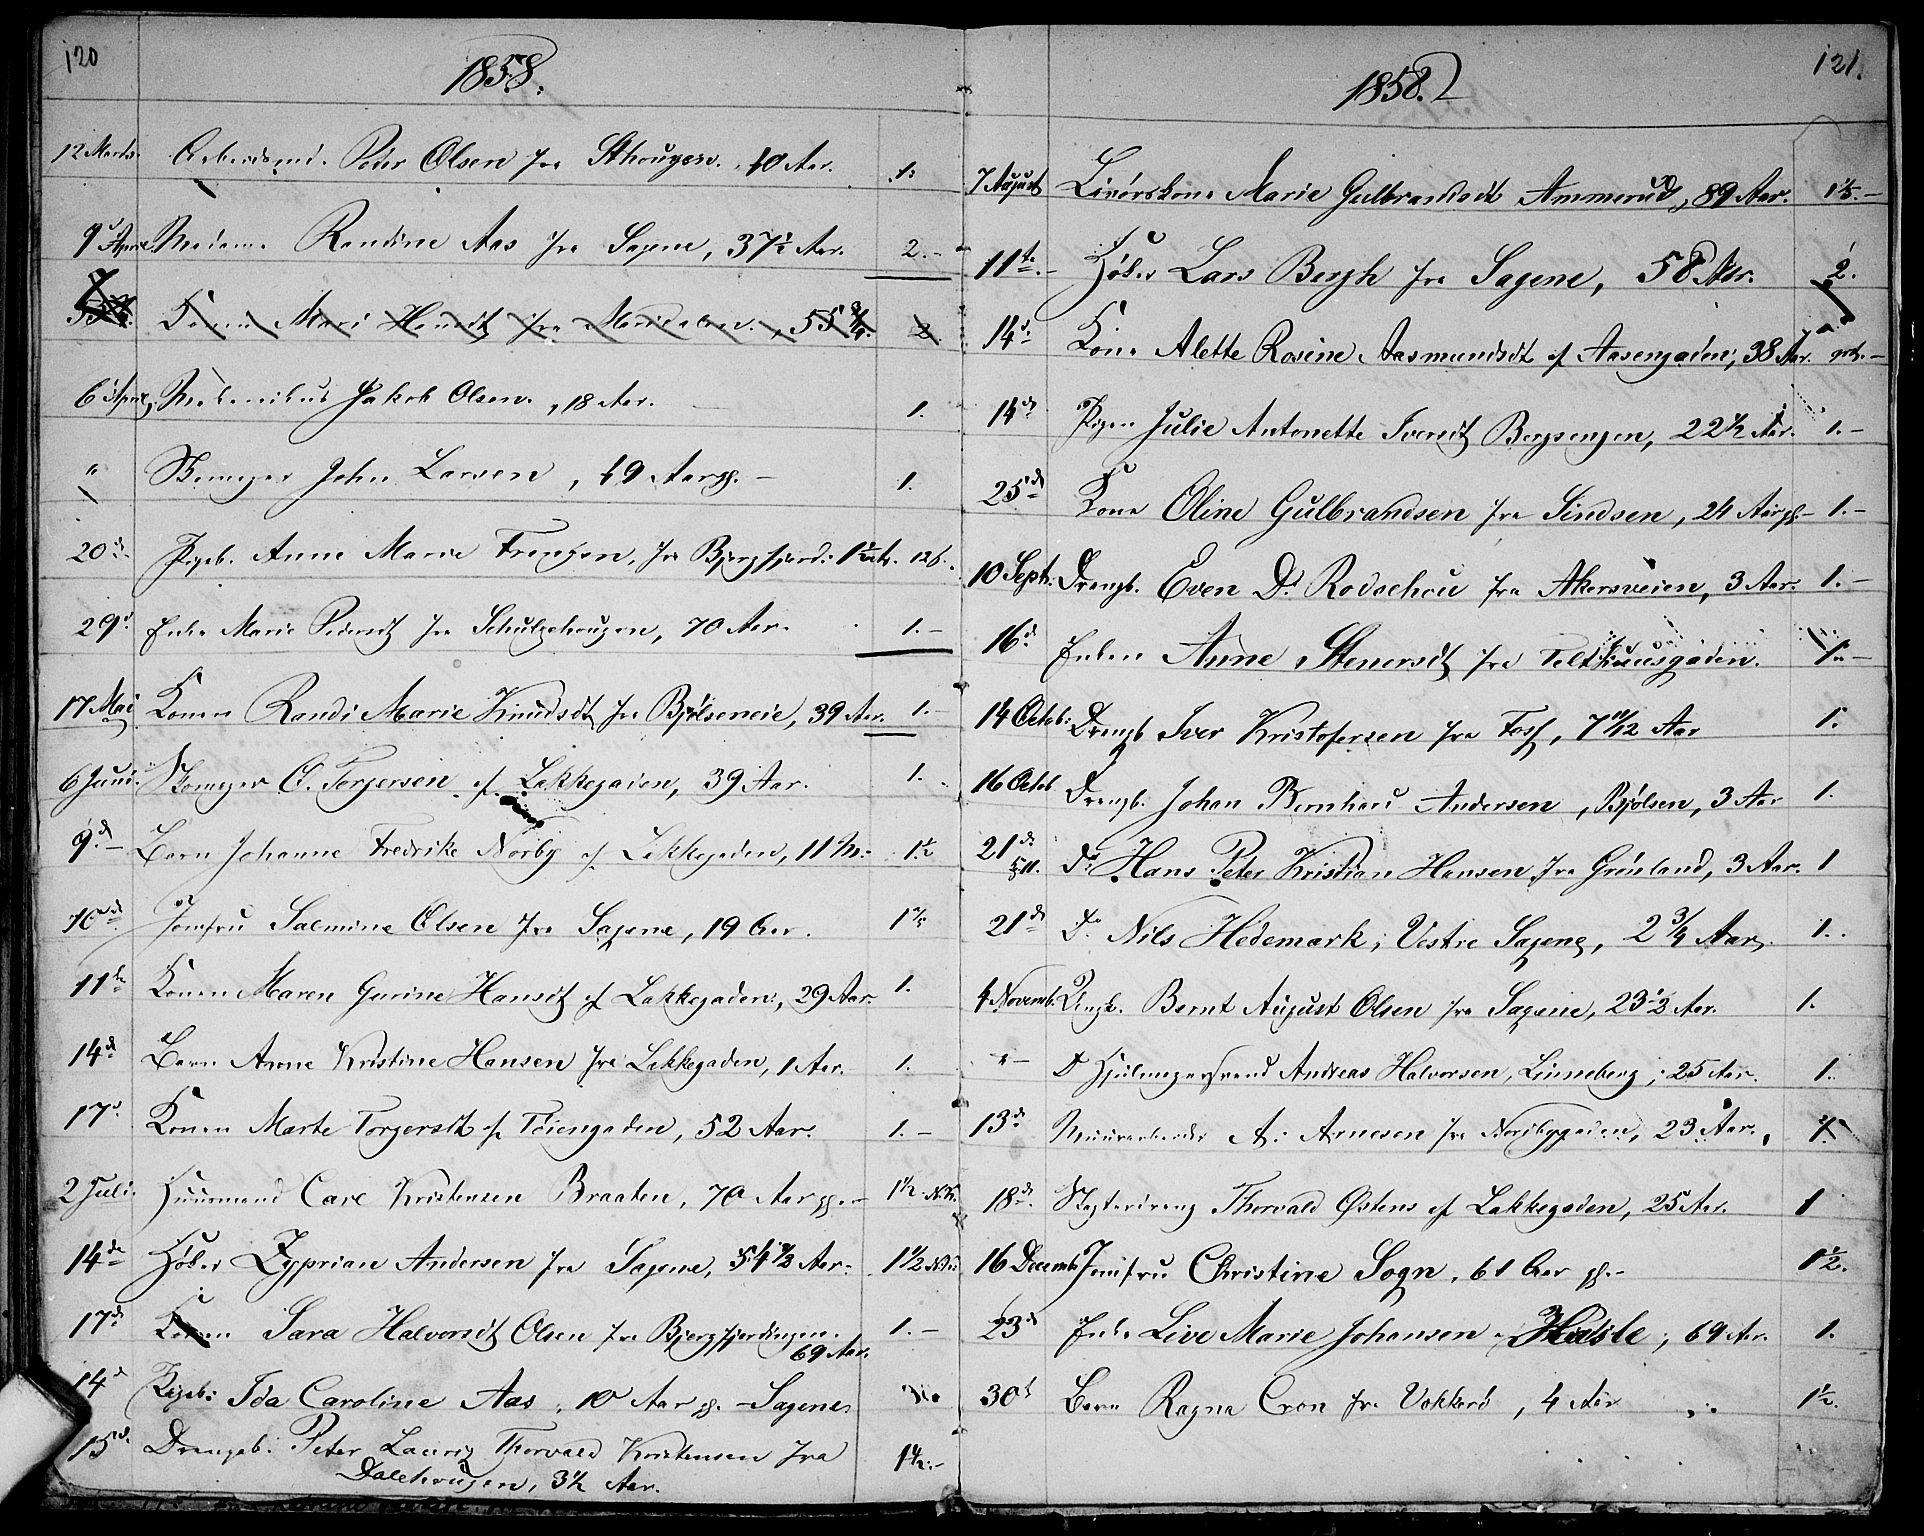 120
1858.
12 Marts. Arbeidsmd. Peder Olsen fra Sthougen. 40 Aar. 1.
9 April Madame Randine Aas fra Sagene, 37½ Aar. 2.-
Kone Mari Hansdt fra Maridalen, 55¾. 2.
6 April Mekanikus Jakob Olsen, 18 Aar. 1.
" Skomager John Larsen, 49 Aar gl. - 1.
20d. Pigeb. Anne Marie Frenzen, fra Bjergfjerd:
29d. Enke Marie Pedersdt fra Schulzehougen, 70 Aar. 1.-
17 Mai Konen Randi Marie Knudsdt fra Bjølseneie, 39 Aar. 1.-
6 Juni. Skomager O. Torgersen af Lakkegaden, 39 Aar. 1.
9d.- Barn Johanne Fredrike Norby af Lakkegaden, 11 M: 1½
10d. Jomfru Salmine Olsen fra Sagene, 19 Aar. 1½
11te Konen Maren Gurine Hansdt af Lakkegaden, 29 Aar. 1.
14d Barn Anne Kristine Hansen fra Lakkegaden, 1 Aar. 1.
17d. Konen Marte Torgersdt af Tøiengaden, 52 Aar. 1.-
2 Juli. Huusmand Carl Kristensen Braaten, 70 Aar gl.- 1½
14de Høker Zyprian Andersen fra Sagene, 54½ Aar. 1½
17d Konen Sara Halvorsdt Olsen fra Bjergfjerdingen. 1.-
69 Aar.
14d Pigeb: Ida Caroline Aas, 10 Aar gl. - Sagene
15d. Drengeb: Peter Lauriz Thorvald Kristensen fra 1½.-
Dalehougen, 3½ Aar.
121.
1858.
7 August Livørskone Marie Gulbrandsdt Ammerud, 89 Aar. 1½.-
11te.- Høker Lars Bergh fra Sagene, 58 Aar. 2.
14d. Kone Alette Rosine Aasmundsdt af Aasengaden, 38 Aar.
14d Pigen Julie Antonette Iversdt Bergsengen, 22½ Aar. 1.-
25d Kone Oline Gulbrandsen fra Sindsen, 24 Aar gl.- 1.-
10 Septr. Drengb. Even Dl Rodschou fra Akersveien, 3 Aar. 1.-
16d. Enken Anne Stenersdt fra Telthuusgaden. 1.-
14 Octob: Drengb Iver Kristofersen fra Foss, 7 11/12 Aar 1.
16 Octob Drengb. Johan Bernhard Andersen, Bjølsen, 3 Aar 1.
21d. Do Hans Peter Kristian Hansen fra Grønland, 3 Aar. 1
21d Do. Nils Hedemark, Vestre Sagene, 2¾ Aar. 1.
4 Novemb. Ungk. Bernt August Olsen fra Sagene, 23½ Aar. 1.
"- Do Hjulmagersvend Andreas Halvorsen, Linneberg, 25 Aar. 1.
13d Muurarbeider A. Arnesen fra Norbygaden, 23 Aar. 1.
18d. Slagterdreng Thorvald Østens af Lakkegaden, 25 Aar. 1
16 Decemb Jomfru Christine Sogn, 61 Aar gl.- 1½.
23d Enke Live Marie Johansen, Hasle, 69 Aar. 1.
30d Barn Ragna Cron fra Vokkerø, 4 Aar 1½.